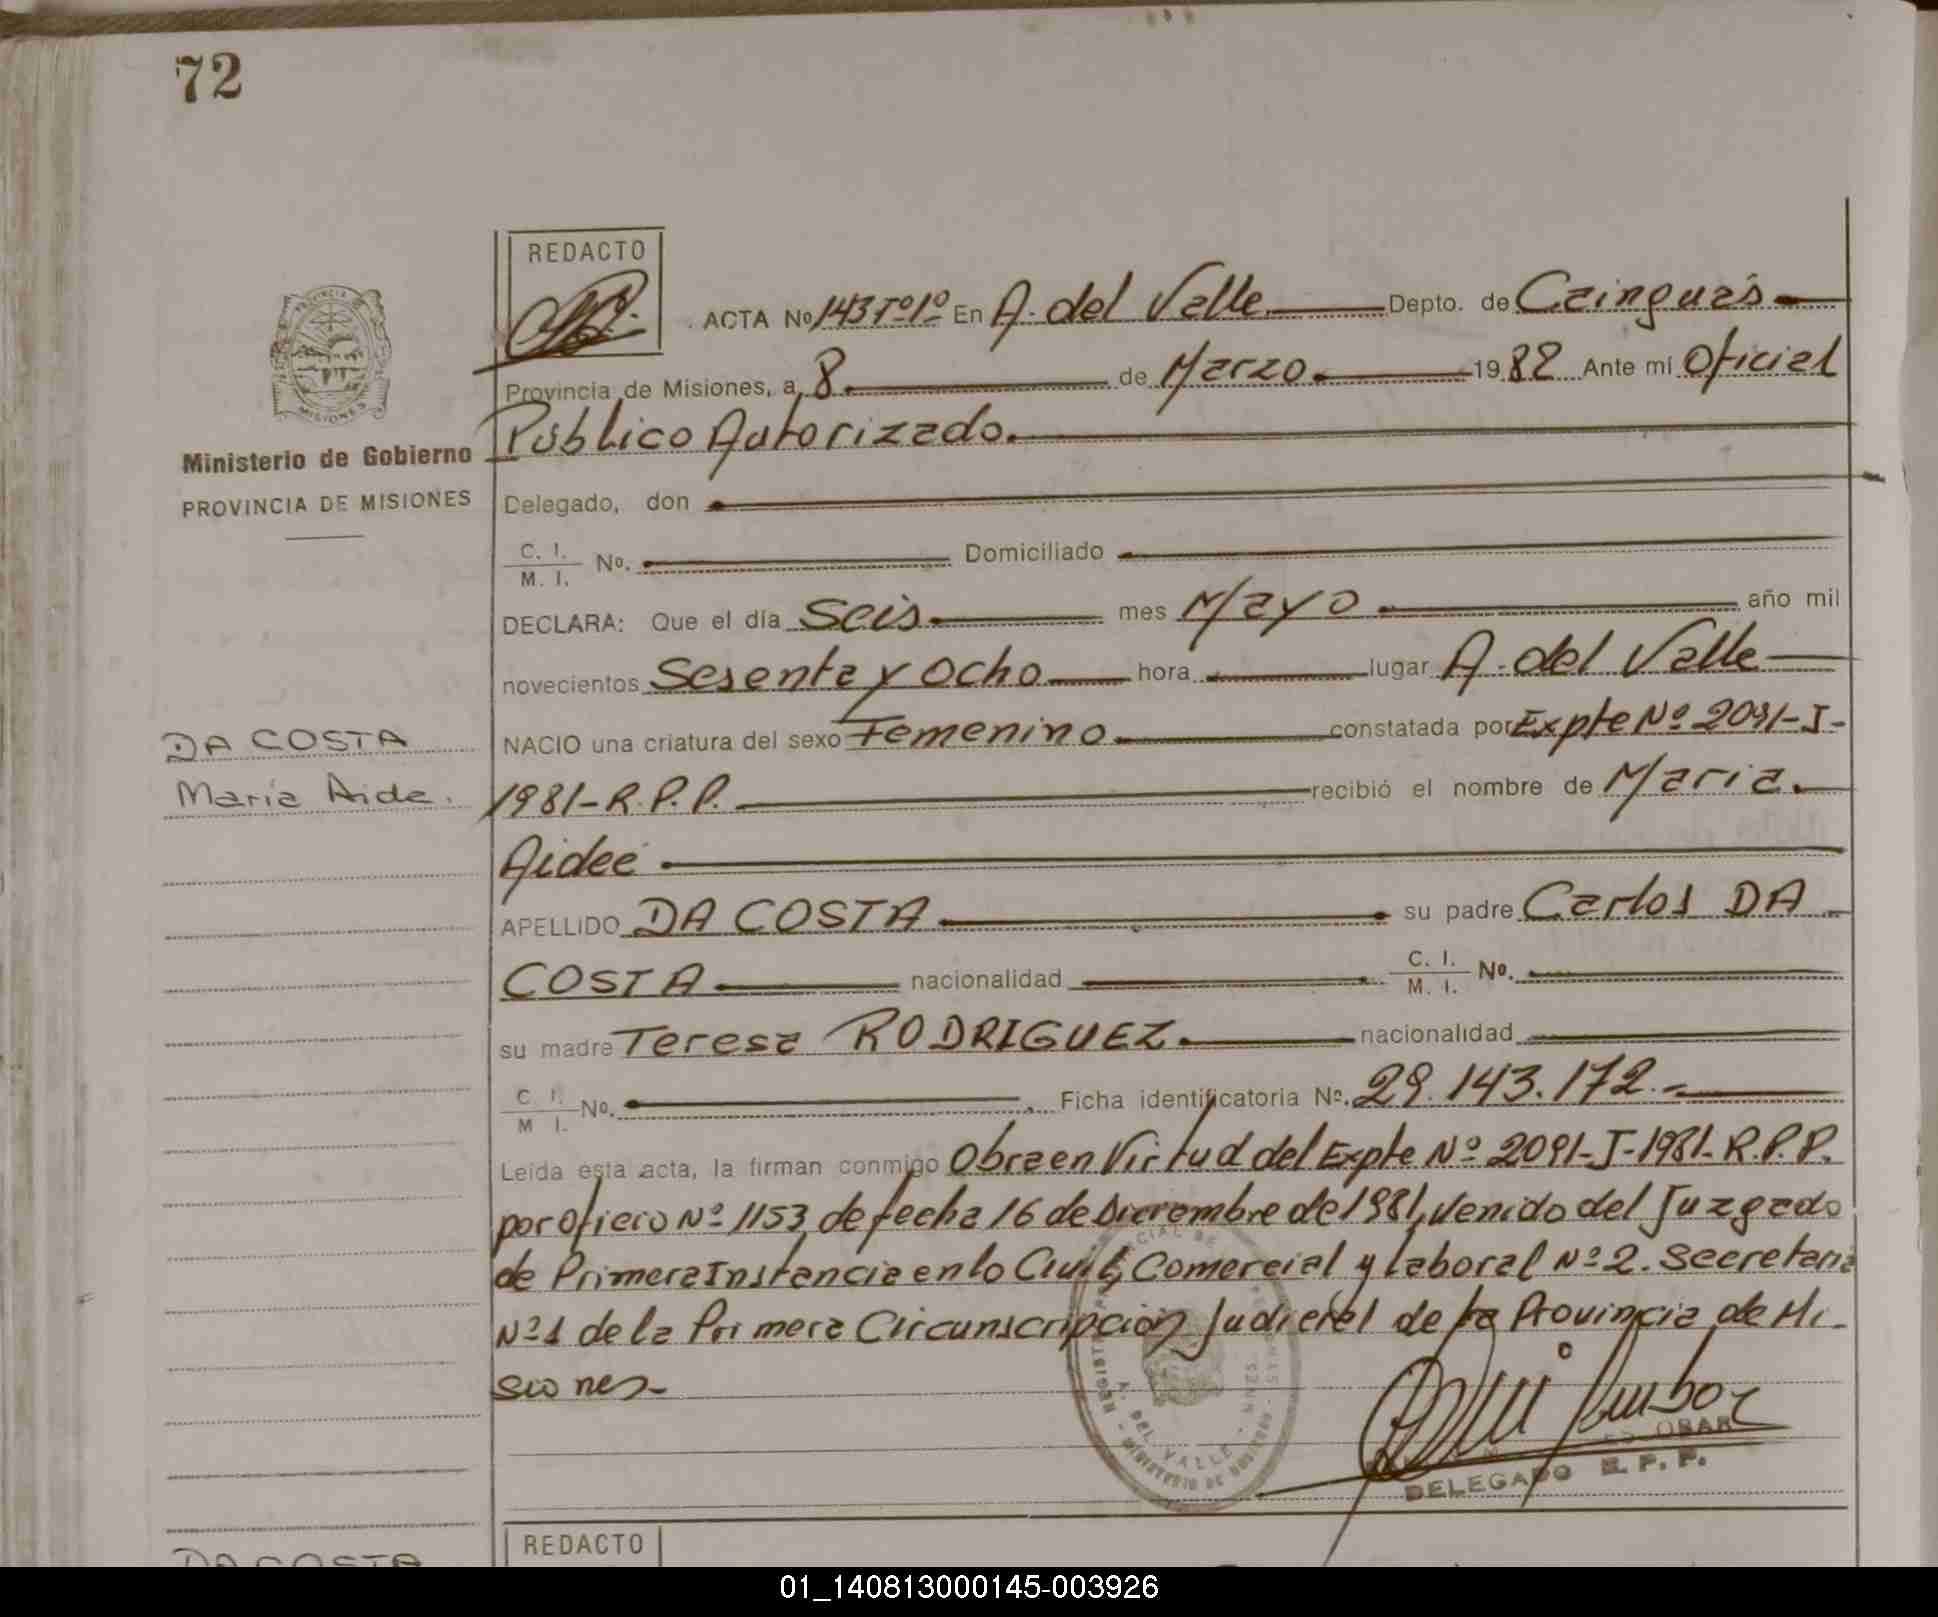 72
REDACTO
ACTA No 143 Tº1º En A. del Valle Depto. de Cainguás
Provincia de Misiones, a 8 de Marzo 1982 Ante mi Oficial
Público Autorizado.
Ministerio de Gobierno
PROVINCIA DE MISIONES
Delegado, don
C. I. M. I. No. Domiciliado
DECLARA: Que el día Seis mes Mayo año mil
novecientos Sesenta y Ocho hora lugar A. del Valle
NACIO una criatura del sexo Femenino constatada por Expte Nº 2091-J-
DA COSTA
Maria Aide.
1981-R.P.P. recibió el nombre de Maria
Aideé
APELLIDO DA COSTA su padre Carlos DA
COSTA nacionalidad C. I. M. I. No.
su madre Teresa RODRIGUEZ nacionalidad
C I. M I. No. Ficha identificatoria Nº. 29.143.172.-
Leída esta acta, la firman conmigo Obra en Virtud del Expte Nº 2091-J-1981-R.P.P.
por oficio Nº 1153, de fecha 16 de Diciembre de 1981, venido del Juzgado
de Primera Instancia en lo Civil, Comercial y laboral Nº 2. Secretaria
Nº 1 de la Primera Circunscripción Judicial de la Provincia de Mi-
siones-
A. DEL VALLE - MNES.
DELEGADO R. P. P.
REDACTO
DA COSTA
01_140813000145-003926